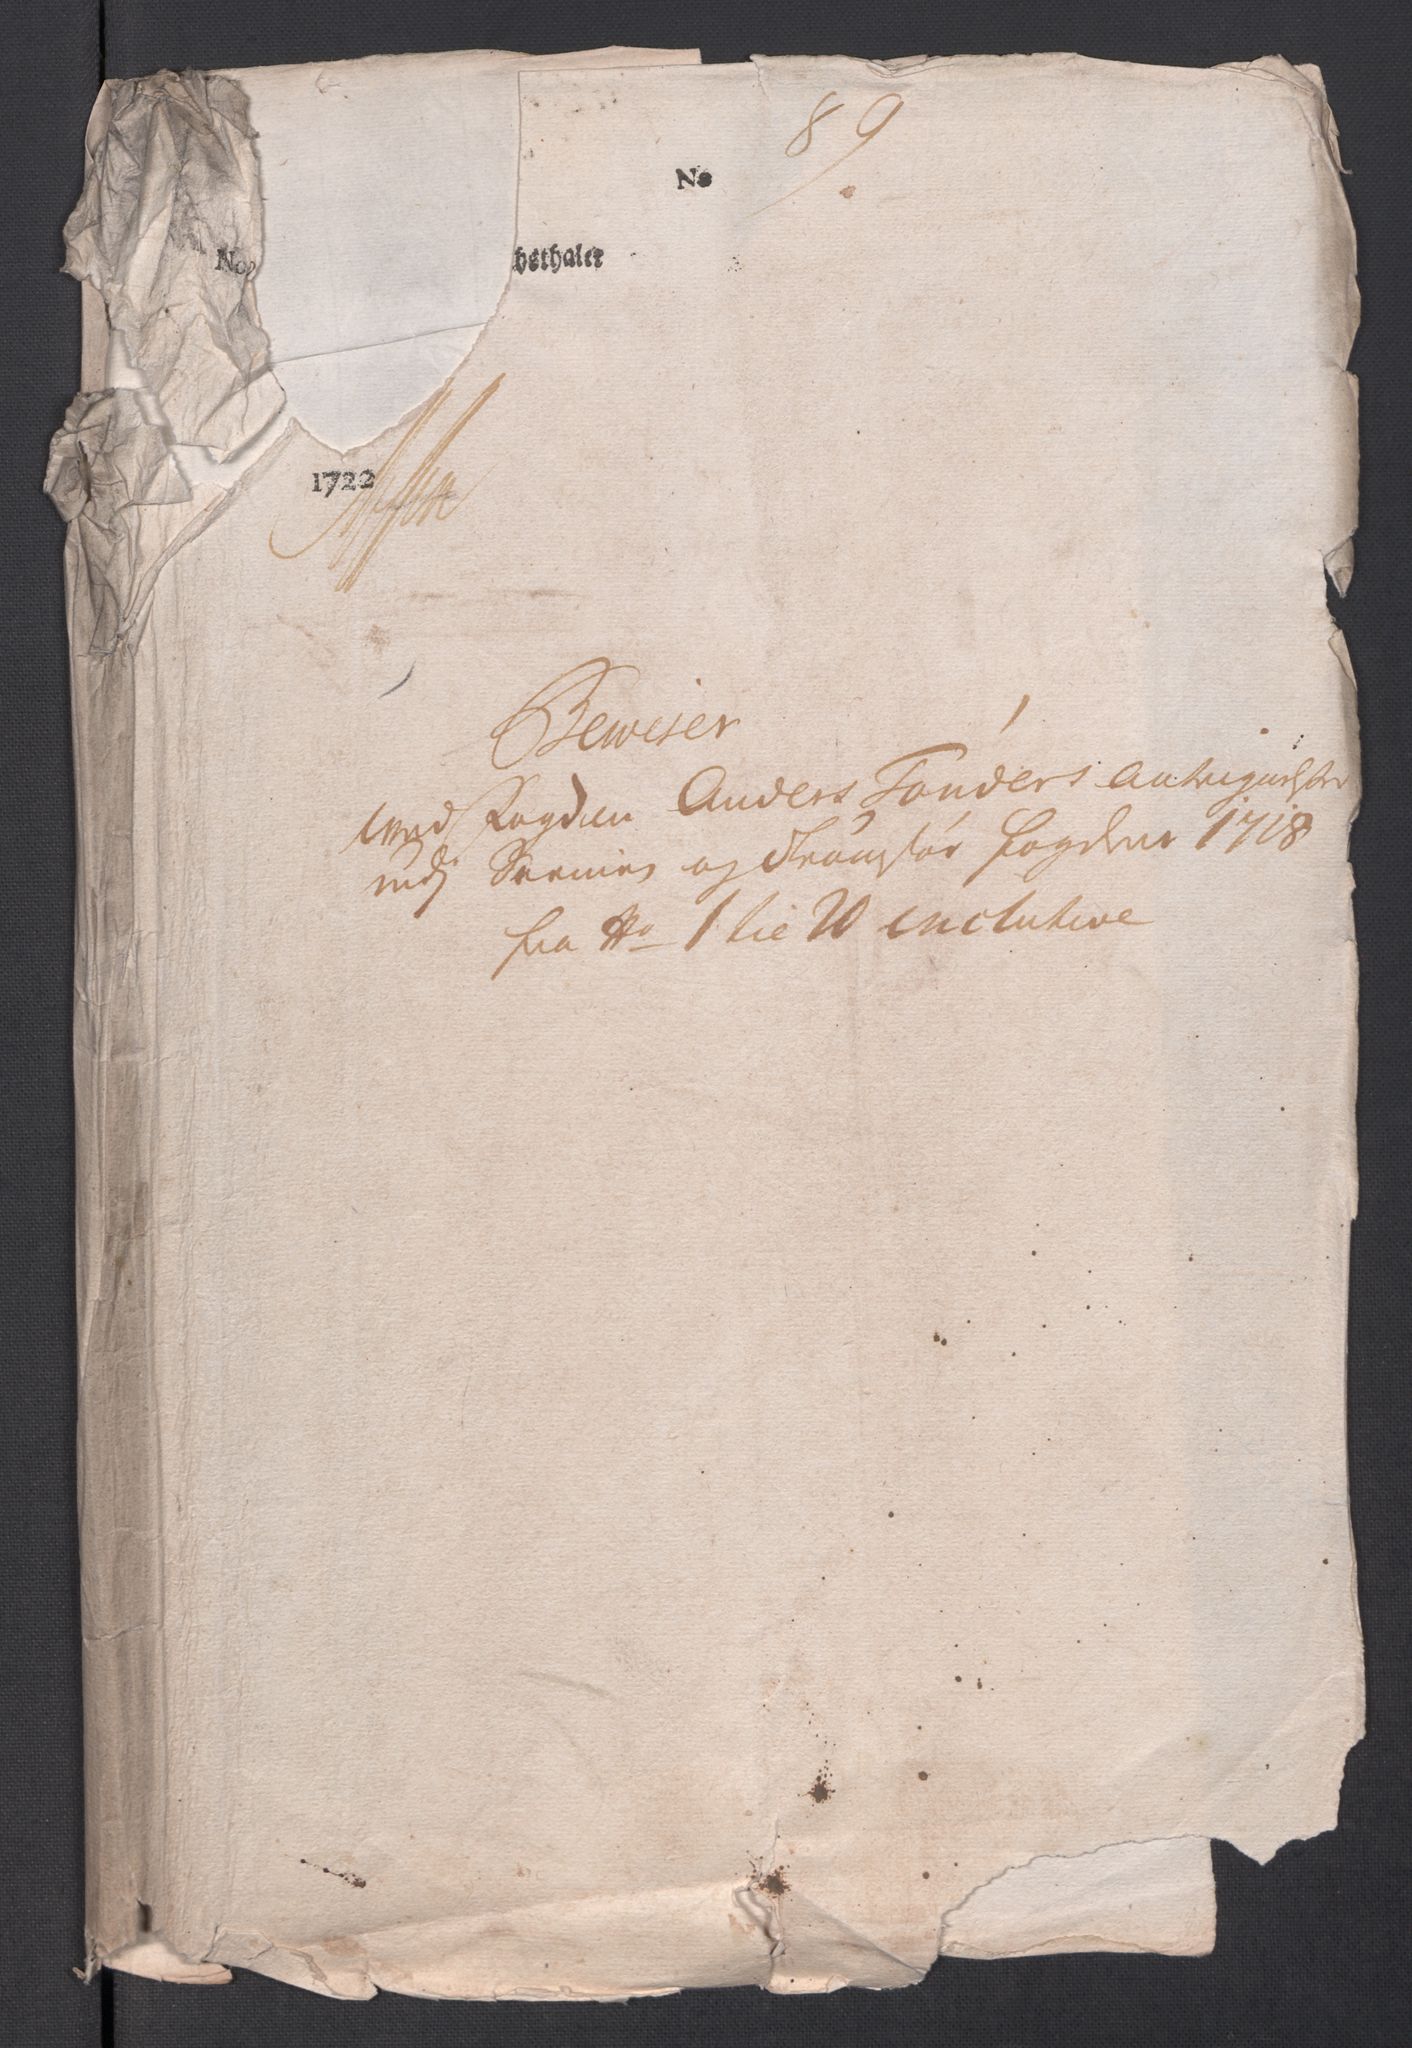 89
No
No
hsthaler
1722
Beviser
wed Fogden Anders Tønders Antegnelser
udj Sennien og Tromsøe fogderie 1718
fra No 1 tie 20 inclusive